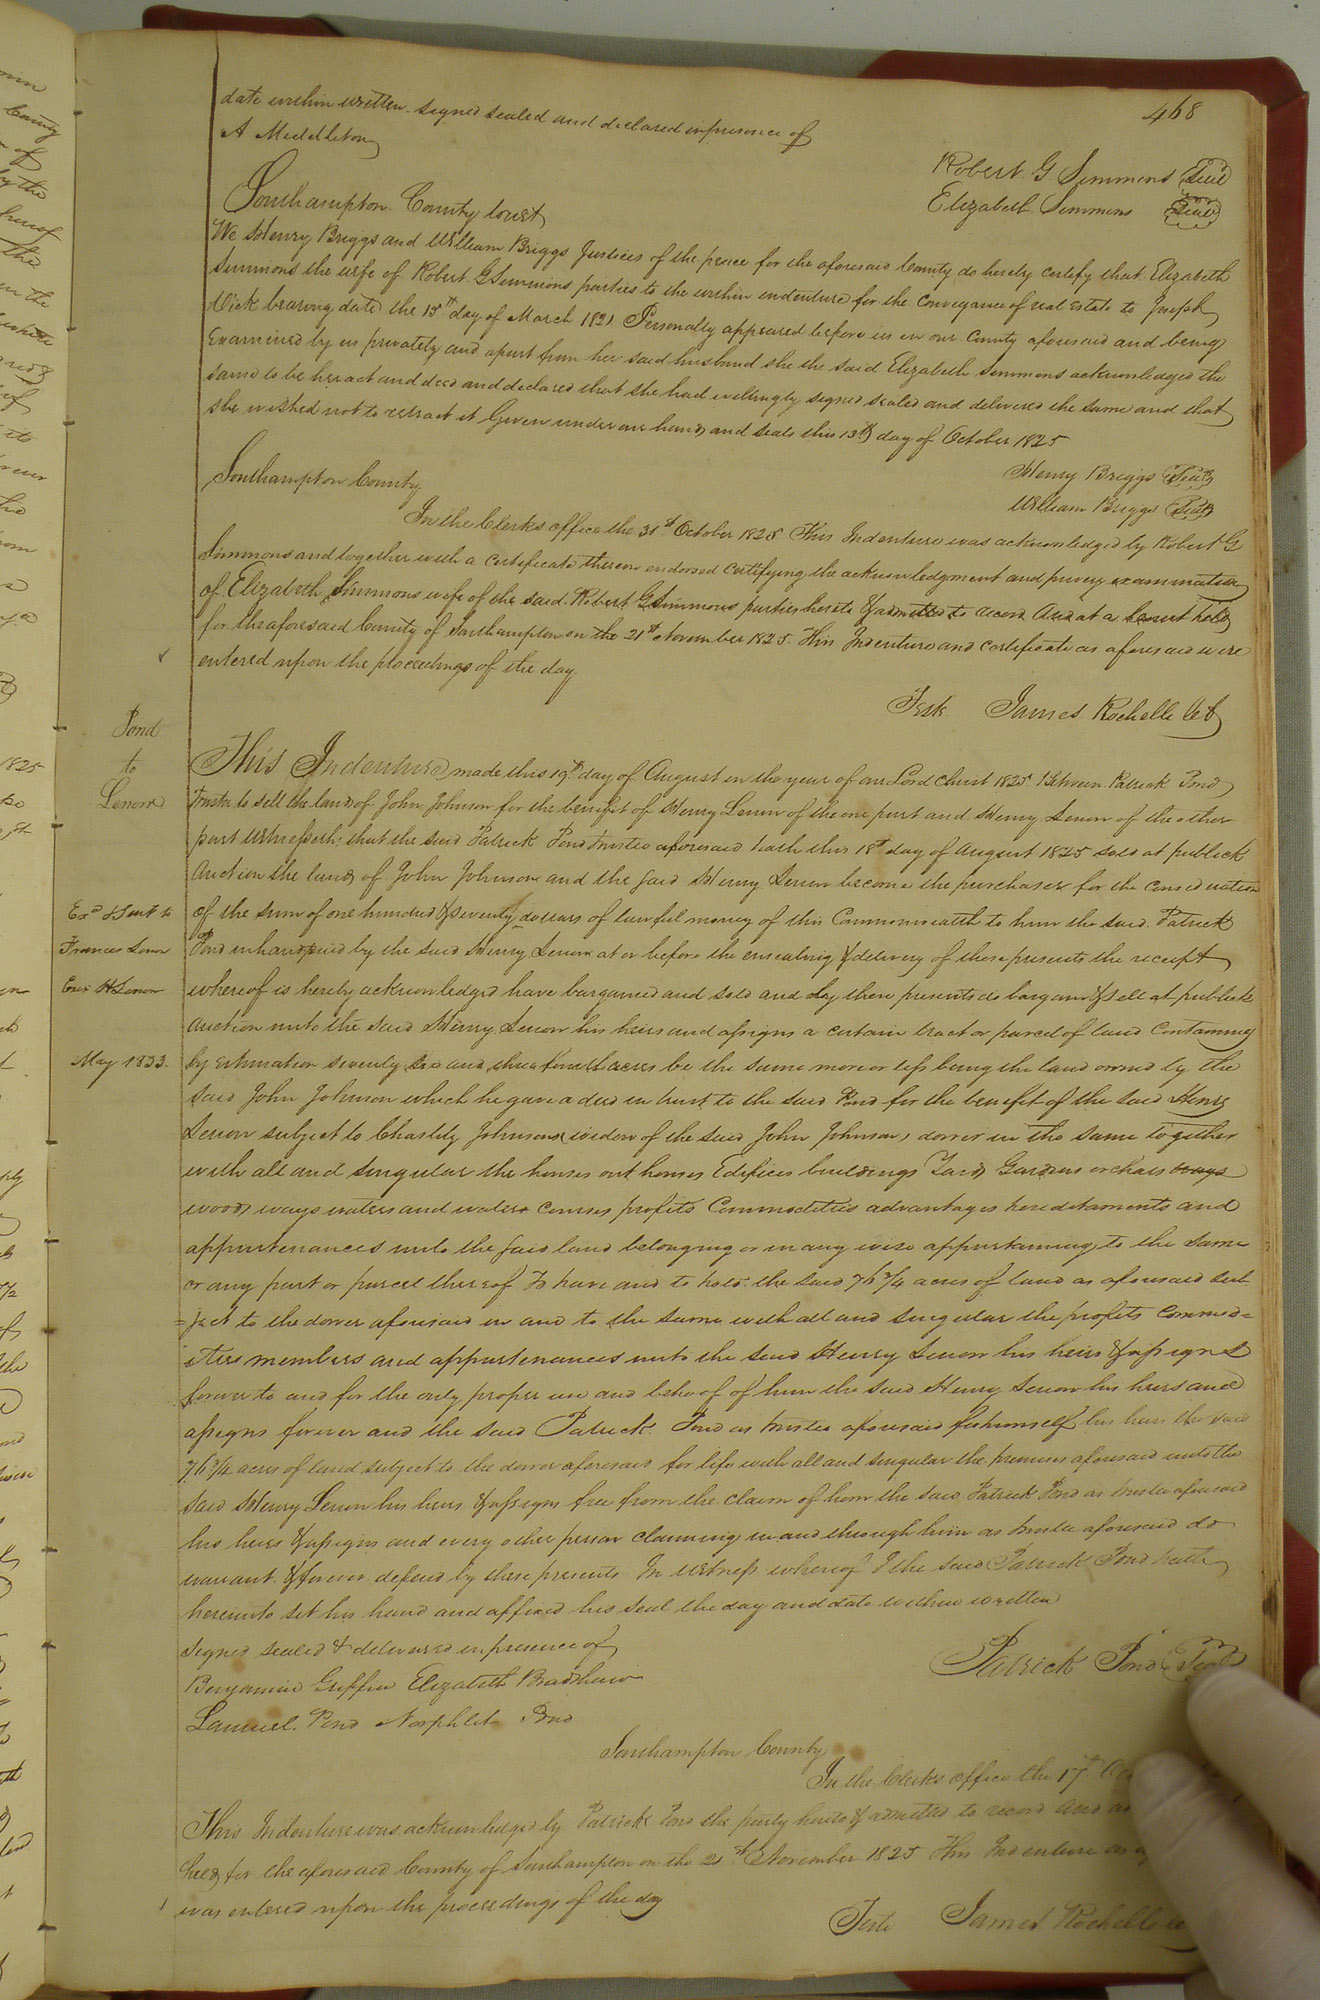 468
date within written. signed sealed and declared in presence of
A Middleton
Robert G. Simmons Seal
Elizabeth Simmons Seal
Southampton County Court
We Henry Briggs and William Briggs Justices of the peace for the aforesaid County do hereby certify that Elizabeth
Simmons the wife of Robert G Simmons parties to the within indenture for the conveyance of real Estate to Joseph
Vick bearing date the 15th day of March 1821 Personally appeared before us in our County aforesaid and being
Examined by us privately and apart from her said husband she the said Elizabeth Simmons acknowledged the
same to be her act and deed and declared that she had willingly signed sealed and delivered the same and that
she wished not to retract it Given under our hands and seals this 13th day of October 1825
Henry Briggs Seal
William Briggs Seal
Southampton County
In the Clerks office the 31st October 1825 This Indenture was acknowledged by Robert G
Simmons and together with a certificate thereon endorsed certifying the acknowledgment and privy examination
of Elizabeth Simmons wife of the said Robert G Simmons parties hereto & admitted to record And at a Court held
for the aforesaid County of Southampton on the 21st November 1825. This Indenture and certificate as aforesaid were
entered upon the proceedings of the day
Teste James Rochelle
Pond
to
Lenow
This Indenture made this 19th day of August in the year of our Lord Christ 1825 Between Patrick Pond
Trustee to sell the land of John Johnson for the benefit of Henry Lenow of the one part and Henry Lenow of the other
part Witnesseth; that the said Patrick Pond trustee aforesaid hath this 18th day of August 1825 sold at publick
Auction the land of John Johnson and the said Henry Lenow became the purchaser for the consideration
of the sum of one hundred & seventy dollars of lawful money of this Commonwealth to him the said Patrick
Pond in hand paid by the said Henry Lenow at or before the ensealing & delivery of these presents the receipt
whereof is hereby acknowledged have bargained and sold and by these presents do bargain & sell at publick
Auction unto the said Henry Lenow his heirs and assigns a certain tract or parcel of land containing
Exd & Sent to
Frances Lenow
Exor H Lenow
May 1833.
by estimation seventy six and three fourth acres be the same more or less being the land owned by the
said John Johnson which he gave a deed in trust to the said Pond for the benefit of the said Henry
Lenow subject to Chastity Johnsons (widow of the said John Johnson) dower in the same together
with all and singular the houses out houses Edifices buildings Yards Gardens orchards ways
woods ways waters and water courses profits Commodities advantages hereditaments and
appurtenances unto the said land belonging or in any wise appertaining to the same
or any part or parcel thereof To have and to hold the said 76 3/4 acres of land as aforesaid sub
=ject to the dower aforesaid in and to the same with all and singular the profits commod=
ities members and appurtenances unto the said Henry Lenow his heirs & assigns
forever to and for the only proper use and behoof of him the said Henry Lenow his heirs and
assigns forever and the said Patrick Pond as trustee aforesaid for himself his heirs the said
76 3/4 acres of land subject to the dower aforesaid for life with all and singular the premises aforesaid unto the
said Henry Lenow his heirs & assigns free from the claim of him the said Patrick Pond as trustee aforesaid
his heirs & assigns and every other person claiming in and through him as trustee aforesaid do
warrant & forever defend by these presents In witness whereof I the said Patrick Pond hath
hereunto set his hand and affixed his seal the day and date within written
Signed sealed & delivered in presence of
Patrick Pond Seal
Benjamin Griffin Elizabeth Bradshaw
Samuel Pond Norphlet Pond
Southampton County
In the Clerks office the 17th
This Indenture was acknowledged by Patrick Pond the party hereto & admitted to record And
held for the aforesaid County of Southampton on the 21st November 1825 This Indenture as
was entered upon the proceedings of the day
Teste James Rochelle